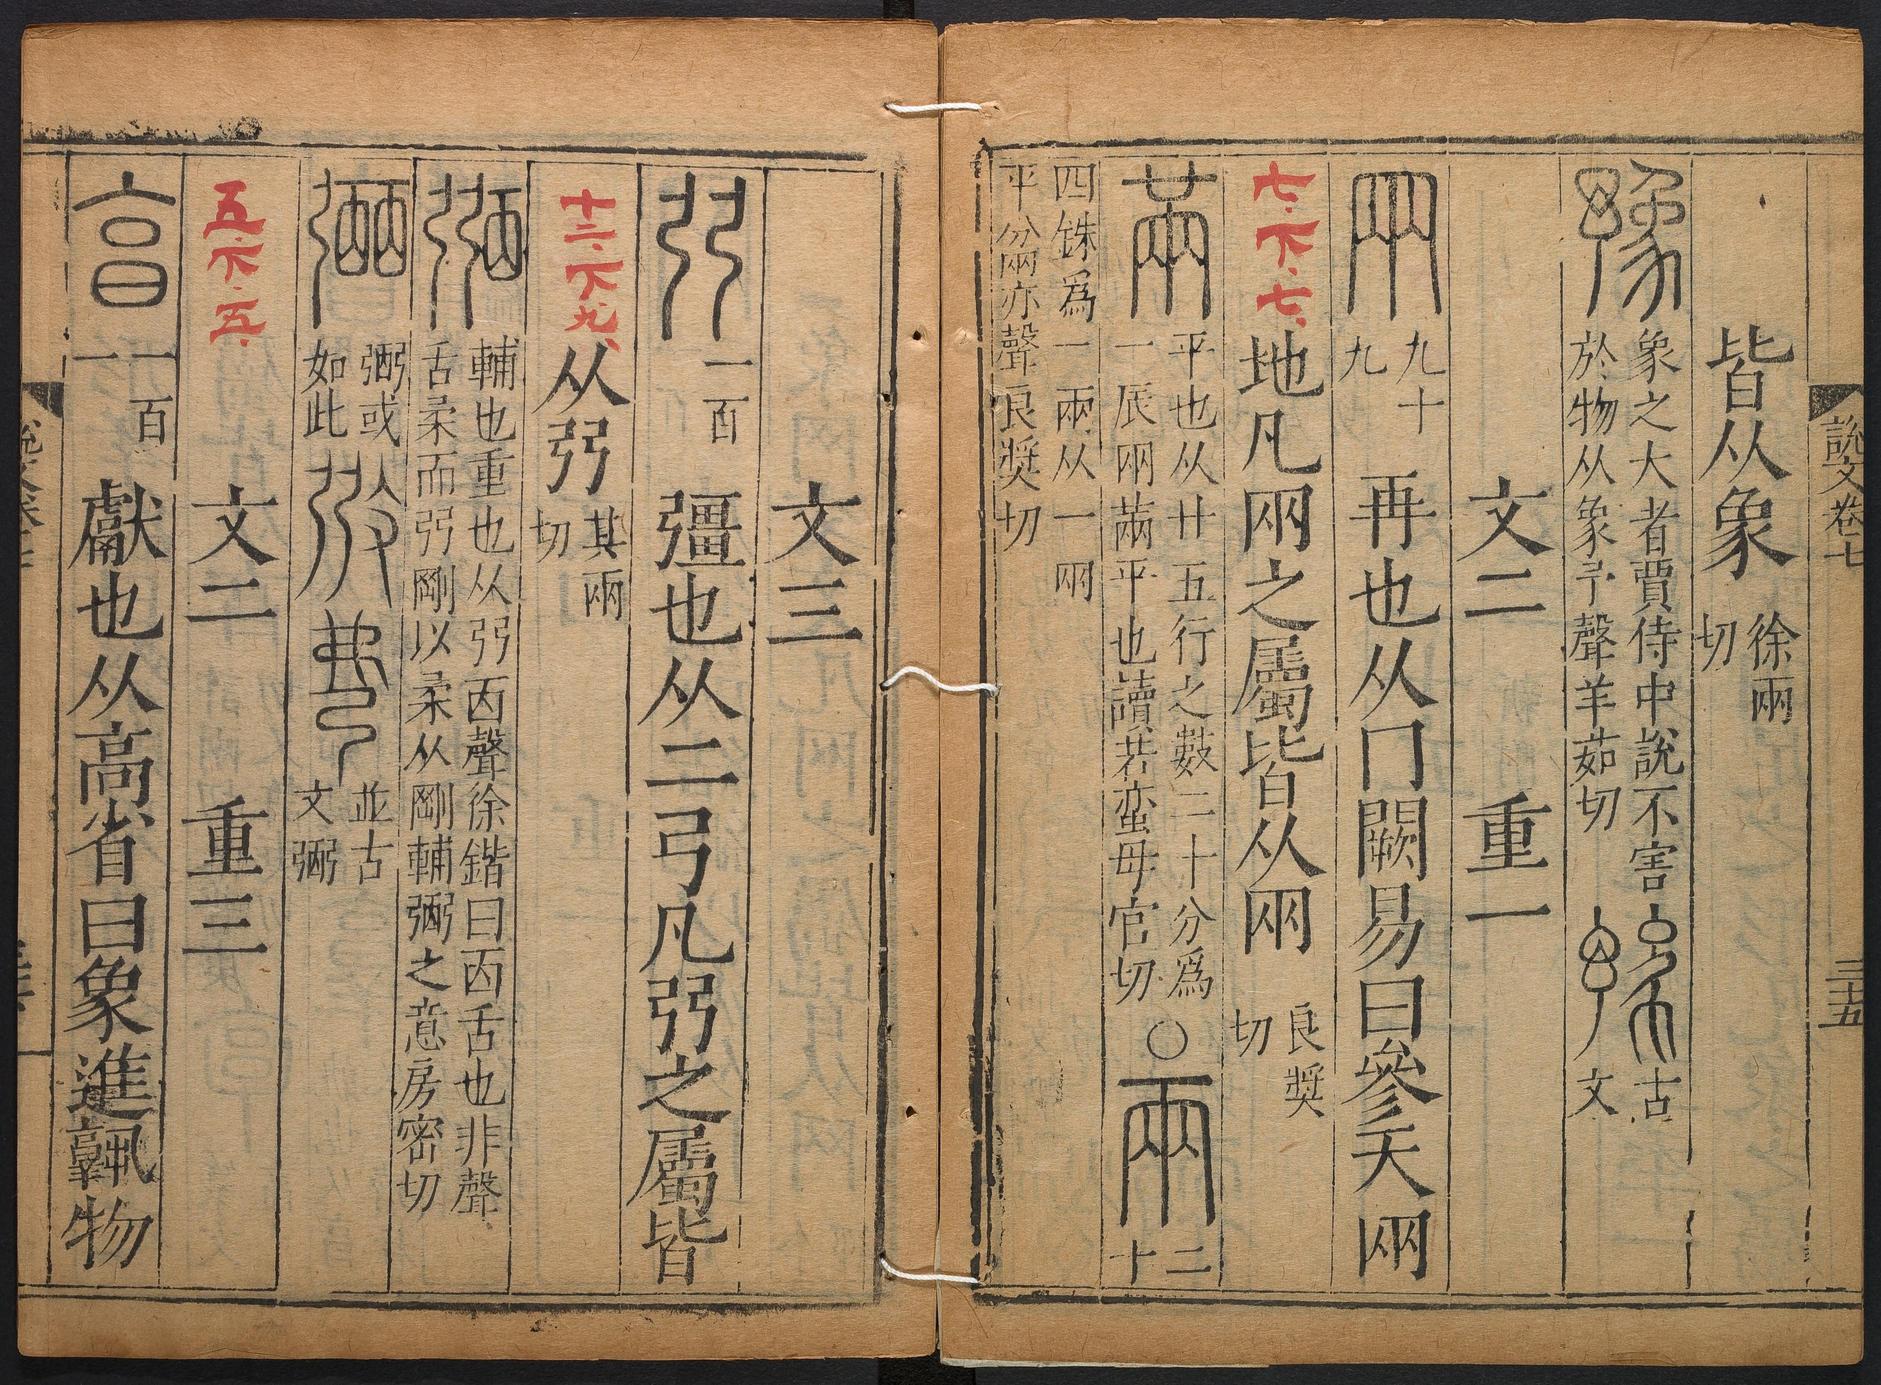 說文卷七
三十五
皆从象徐兩切
豫象之大者賈侍中說不害於物从象予聲羊茹切 古文
文二 重一
㒳九十九 再也从冂闕易曰參天㒳
七.下.七.
地凡㒳之屬皆从㒳良獎切
㒼平也从廿五行之數二十分爲一辰㒳㒼平也讀若蠻母官切〇兩二十
四銖爲一兩从一㒳平分㒳亦聲良獎切
文三
弜一百 彊也从二弓凡弜之屬皆
十二.下.九.
从弜其兩切
弼輔也重也从弜㐁聲徐鍇曰㐁舌也非聲舌柔而弜剛以柔从剛輔弼之意房密切
弼或如此 並古文弼
文二 重三
五.下.五.
亯一百一 獻也从高省曰象進䵻物